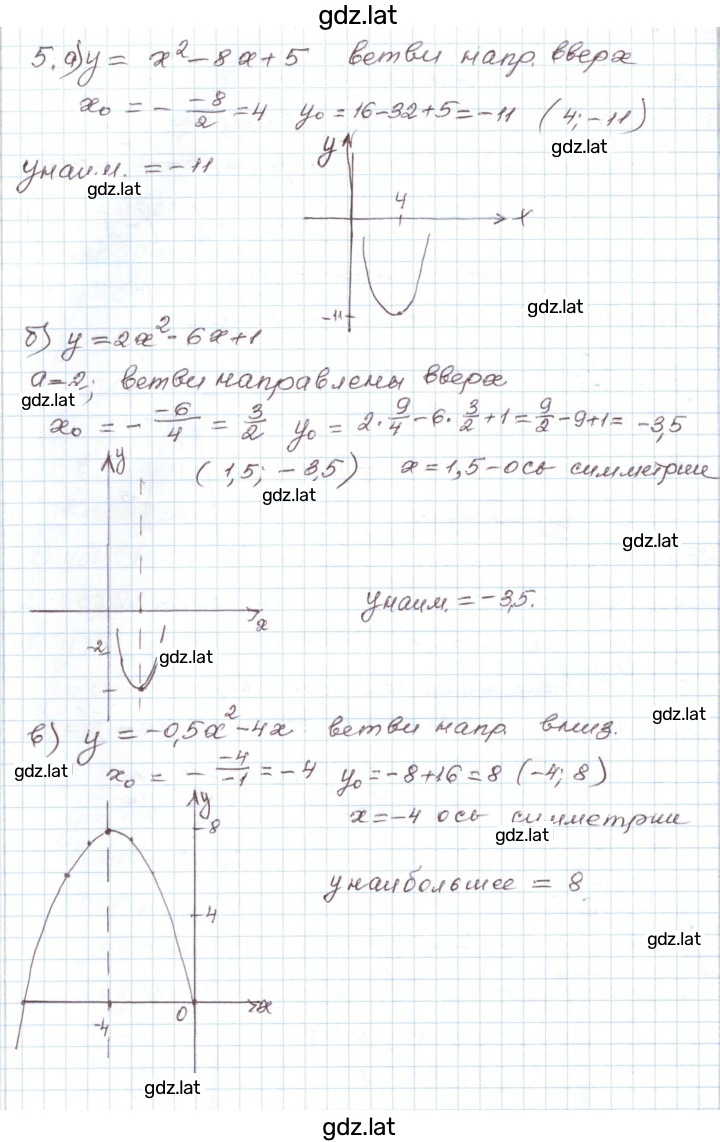 gdz.lat
5. а) y = x² – 8x + 5 ветви напр. вверх
x₀ = – –8/2 = 4 y₀ = 16 – 32 + 5 = –11 (4; –11)
gdz.lat
yнаим. = –11
gdz.lat
y
4
x
–11
gdz.lat
б) y = 2x² – 6x + 1
a = 2; ветви направлены вверх
gdz.lat
x₀ = – –6/4 = 3/2 y₀ = 2 · 9/4 – 6 · 3/2 + 1 = 9/2 – 9 + 1 = –3,5
y
(1,5; –3,5) x = 1,5 – ось симметрии
gdz.lat
gdz.lat
yнаим. = –3,5.
x
–2
gdz.lat
gdz.lat
в) y = –0,5x² – 4x ветви напр. вниз.
gdz.lat
x₀ = – –4/–1 = –4 y₀ = –8 + 16 = 8 (–4; 8)
y
8
x = –4 ось симметрии
gdz.lat
y наибольшее = 8
4
gdz.lat
–4
0
x
gdz.lat
gdz.lat